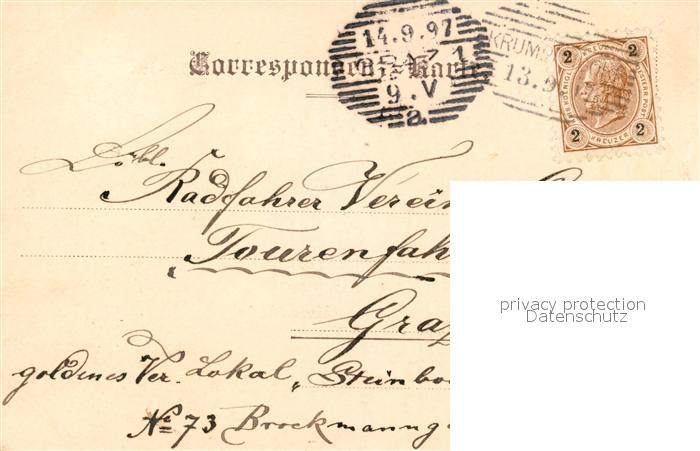 14.9.97
GRAZ 1
9.V
a
KRUM
13.9
Correspondenz-Karte
2 2
2 2
KREUZER
Löbl.
Radfahrer Verein
Tourenfah
Graz
goldenes Ver. Lokal „Steinbo
No 73 Brockmanng
privacy protection
Datenschutz